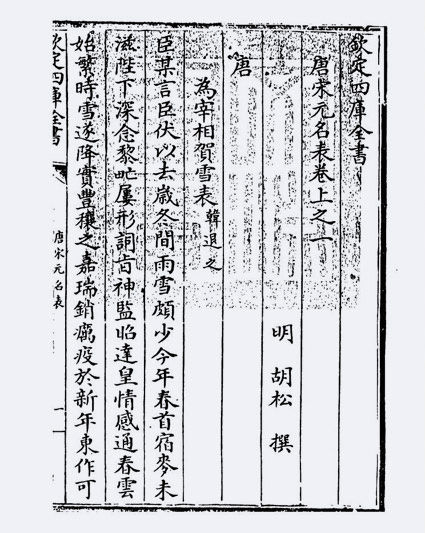 欽定四庫全書
唐宋元名表卷上之一
明 胡松 撰
唐
為宰相賀雪表 韓退之
臣某言臣伏以去歲冬間雨雪頗少今年春首宿麥未
滋陛下深念黎甿屢形詞㫖神監昭達皇情感通春雲
始繁時雪遂降實豐穰之嘉瑞銷癘疫於新年東作可
欽定四庫全書
唐宋元名表
一